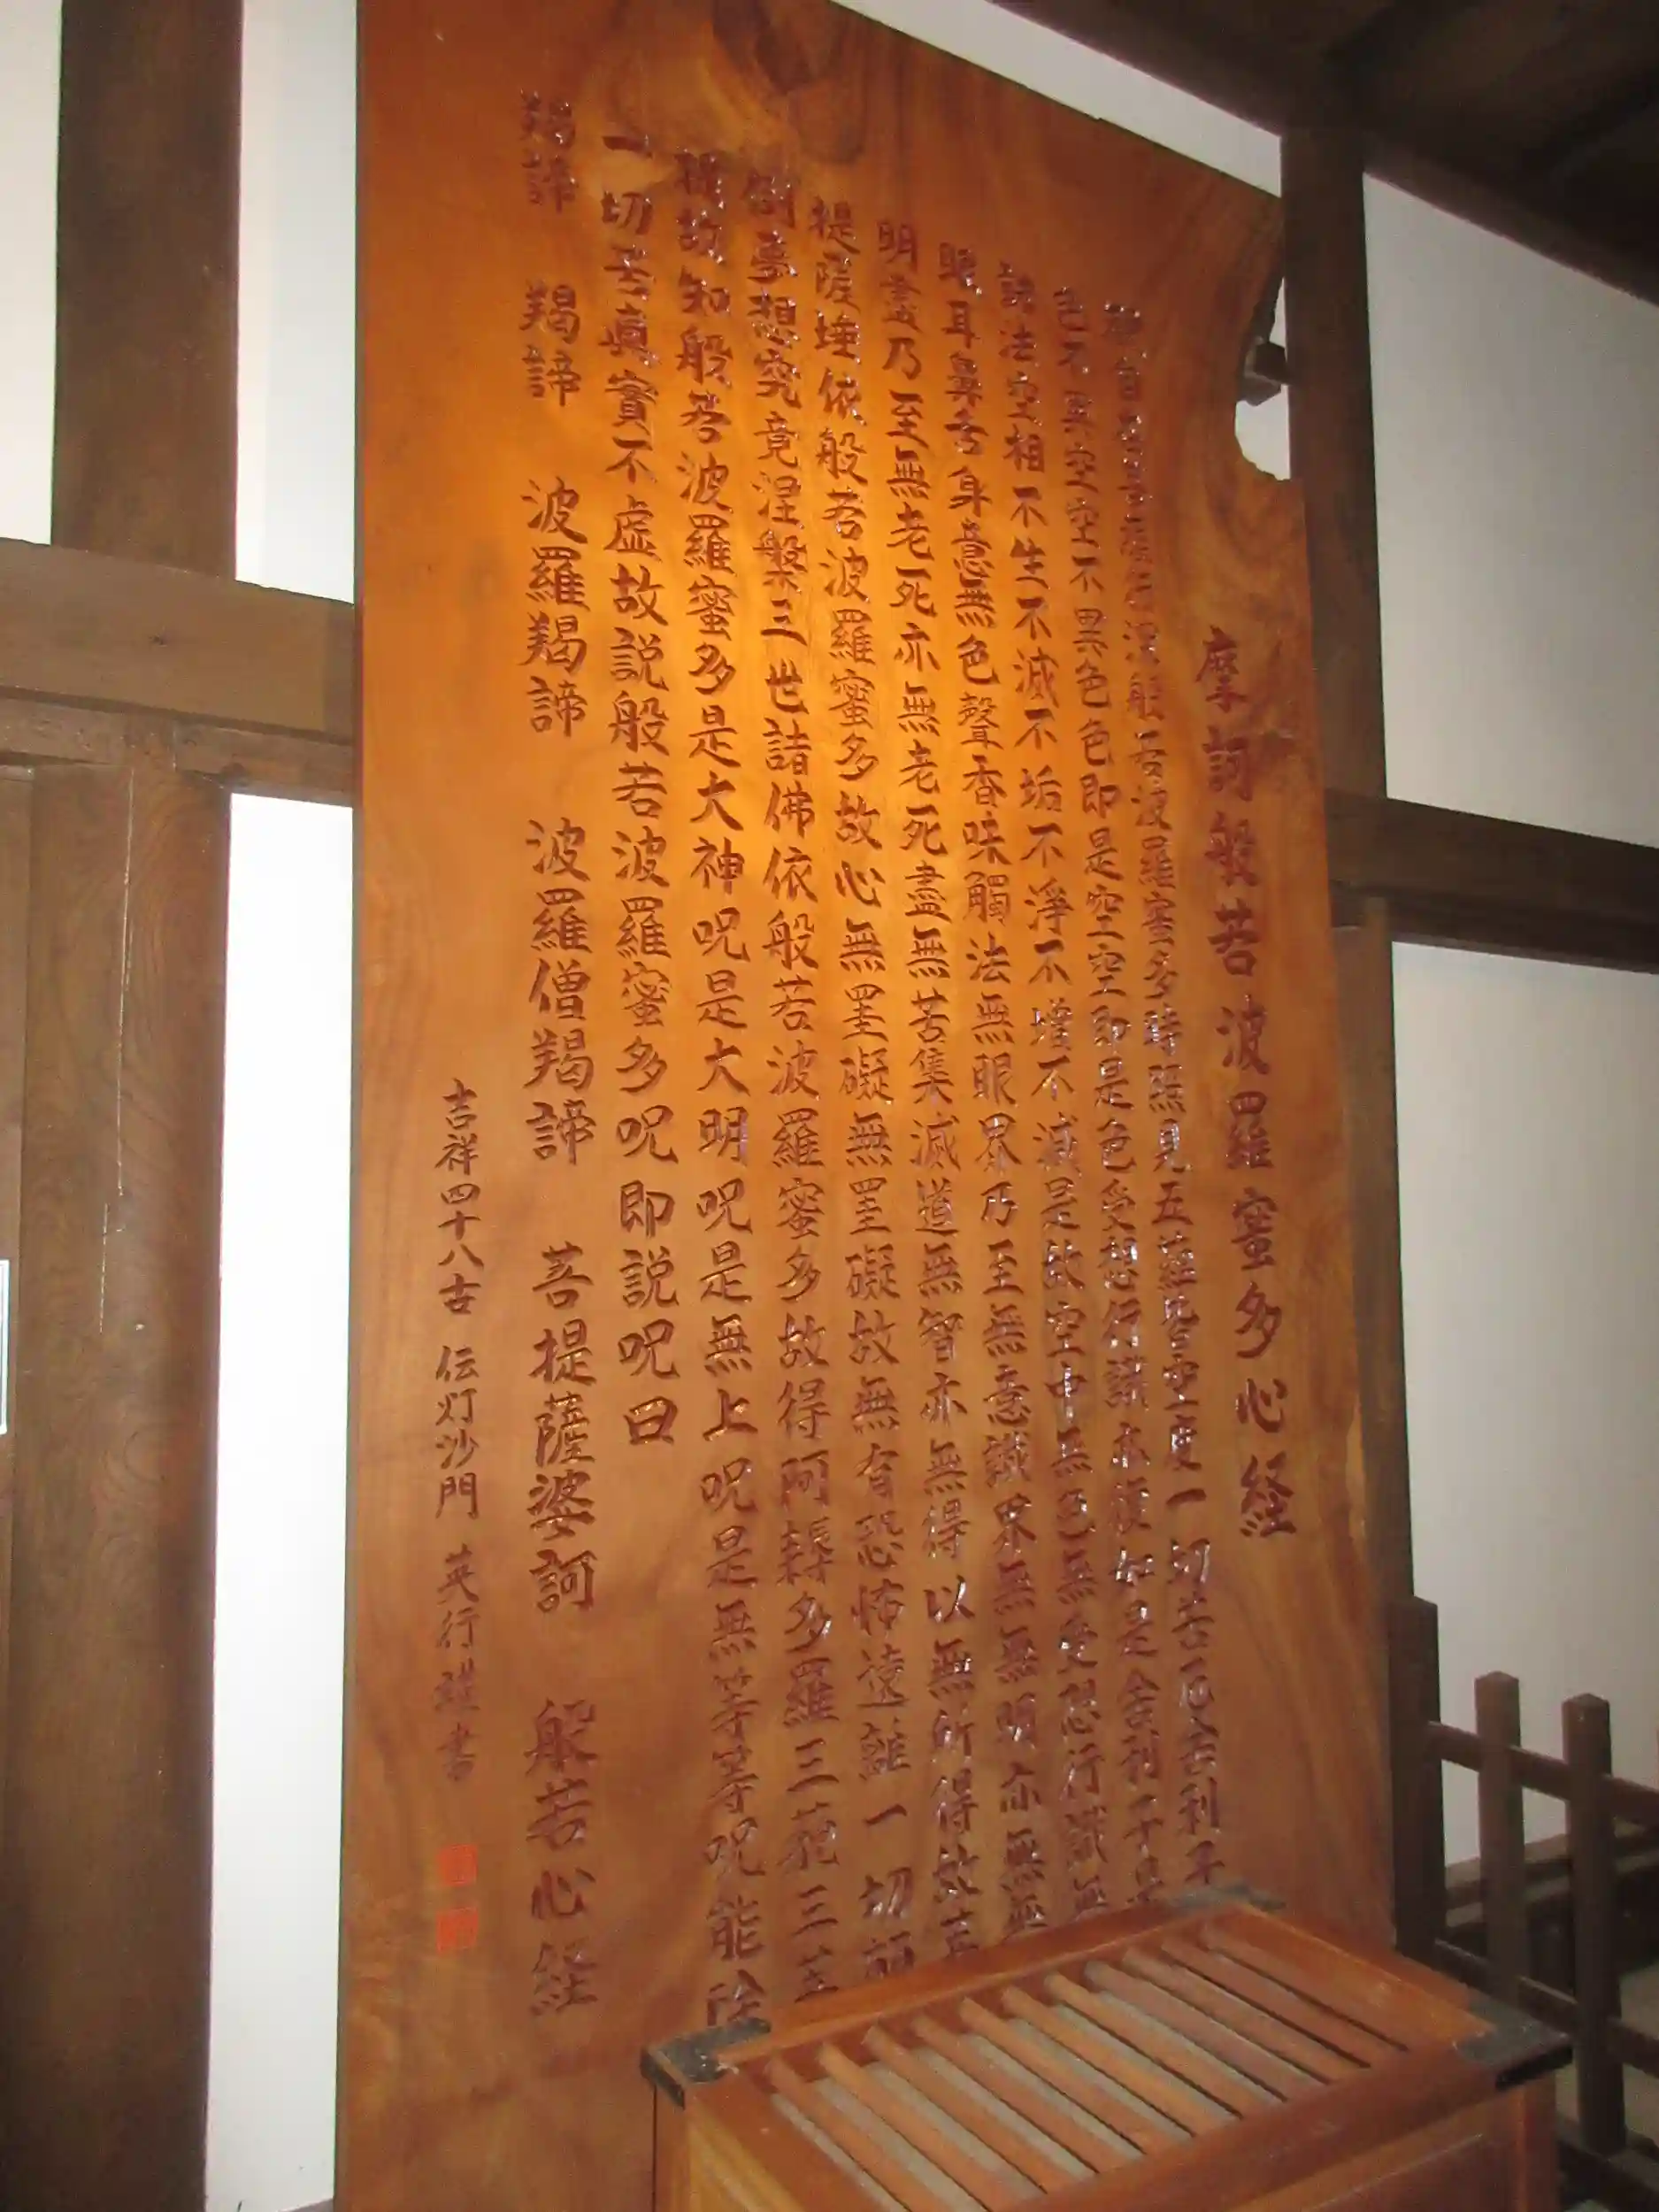 摩訶般若波羅蜜多心経
観自在菩薩行深般若波羅蜜多時照見五蘊皆空度一切苦厄舎利子
色不異空空不異色色即是空空即是色受想行識亦復如是舎利子是
諸法空相不生不滅不垢不淨不増不減是故空中無色無受想行識無
眼耳鼻舌身意無色聲香味觸法無眼界乃至無意識界無無明亦無無
明盡乃至無老死亦無老死盡無苦集滅道無智亦無得以無所得故菩
提薩埵依般若波羅蜜多故心無罣礙無罣礙故無有恐怖遠離一切顛
倒夢想究竟涅槃三世諸佛依般若波羅蜜多故得阿耨多羅三藐三菩
提故知般若波羅蜜多是大神呪是大明呪是無上呪是無等等呪能除
一切苦真實不虚故説般若波羅蜜多呪即説呪曰
羯諦 羯諦 波羅羯諦 波羅僧羯諦 菩提薩婆訶 般若心経
吉祥四十八古 伝灯沙門 英行 書